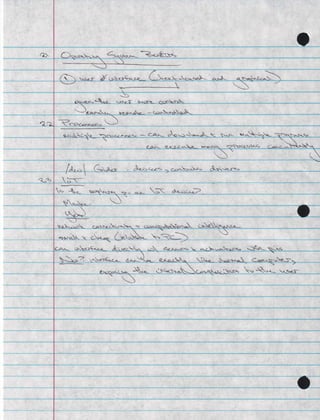 2) Operating System Review
① user interface (text-based and graphical)
gives the user more control
easily remote-controlled
2.2 Processes
multiple processes - can download & run multiple programs
can execute many processes concurrently
/dev/ folder - devices, contains drivers
2.3 IoT
Is the raspberry pi an IoT device?
Maybe
Yes
network connectivity + computational intelligence
small & cheap (relative to PC)
can interface directly w/ sensors & actuators with pins
interface can be exactly like normal computers,
exposing the internal to the user